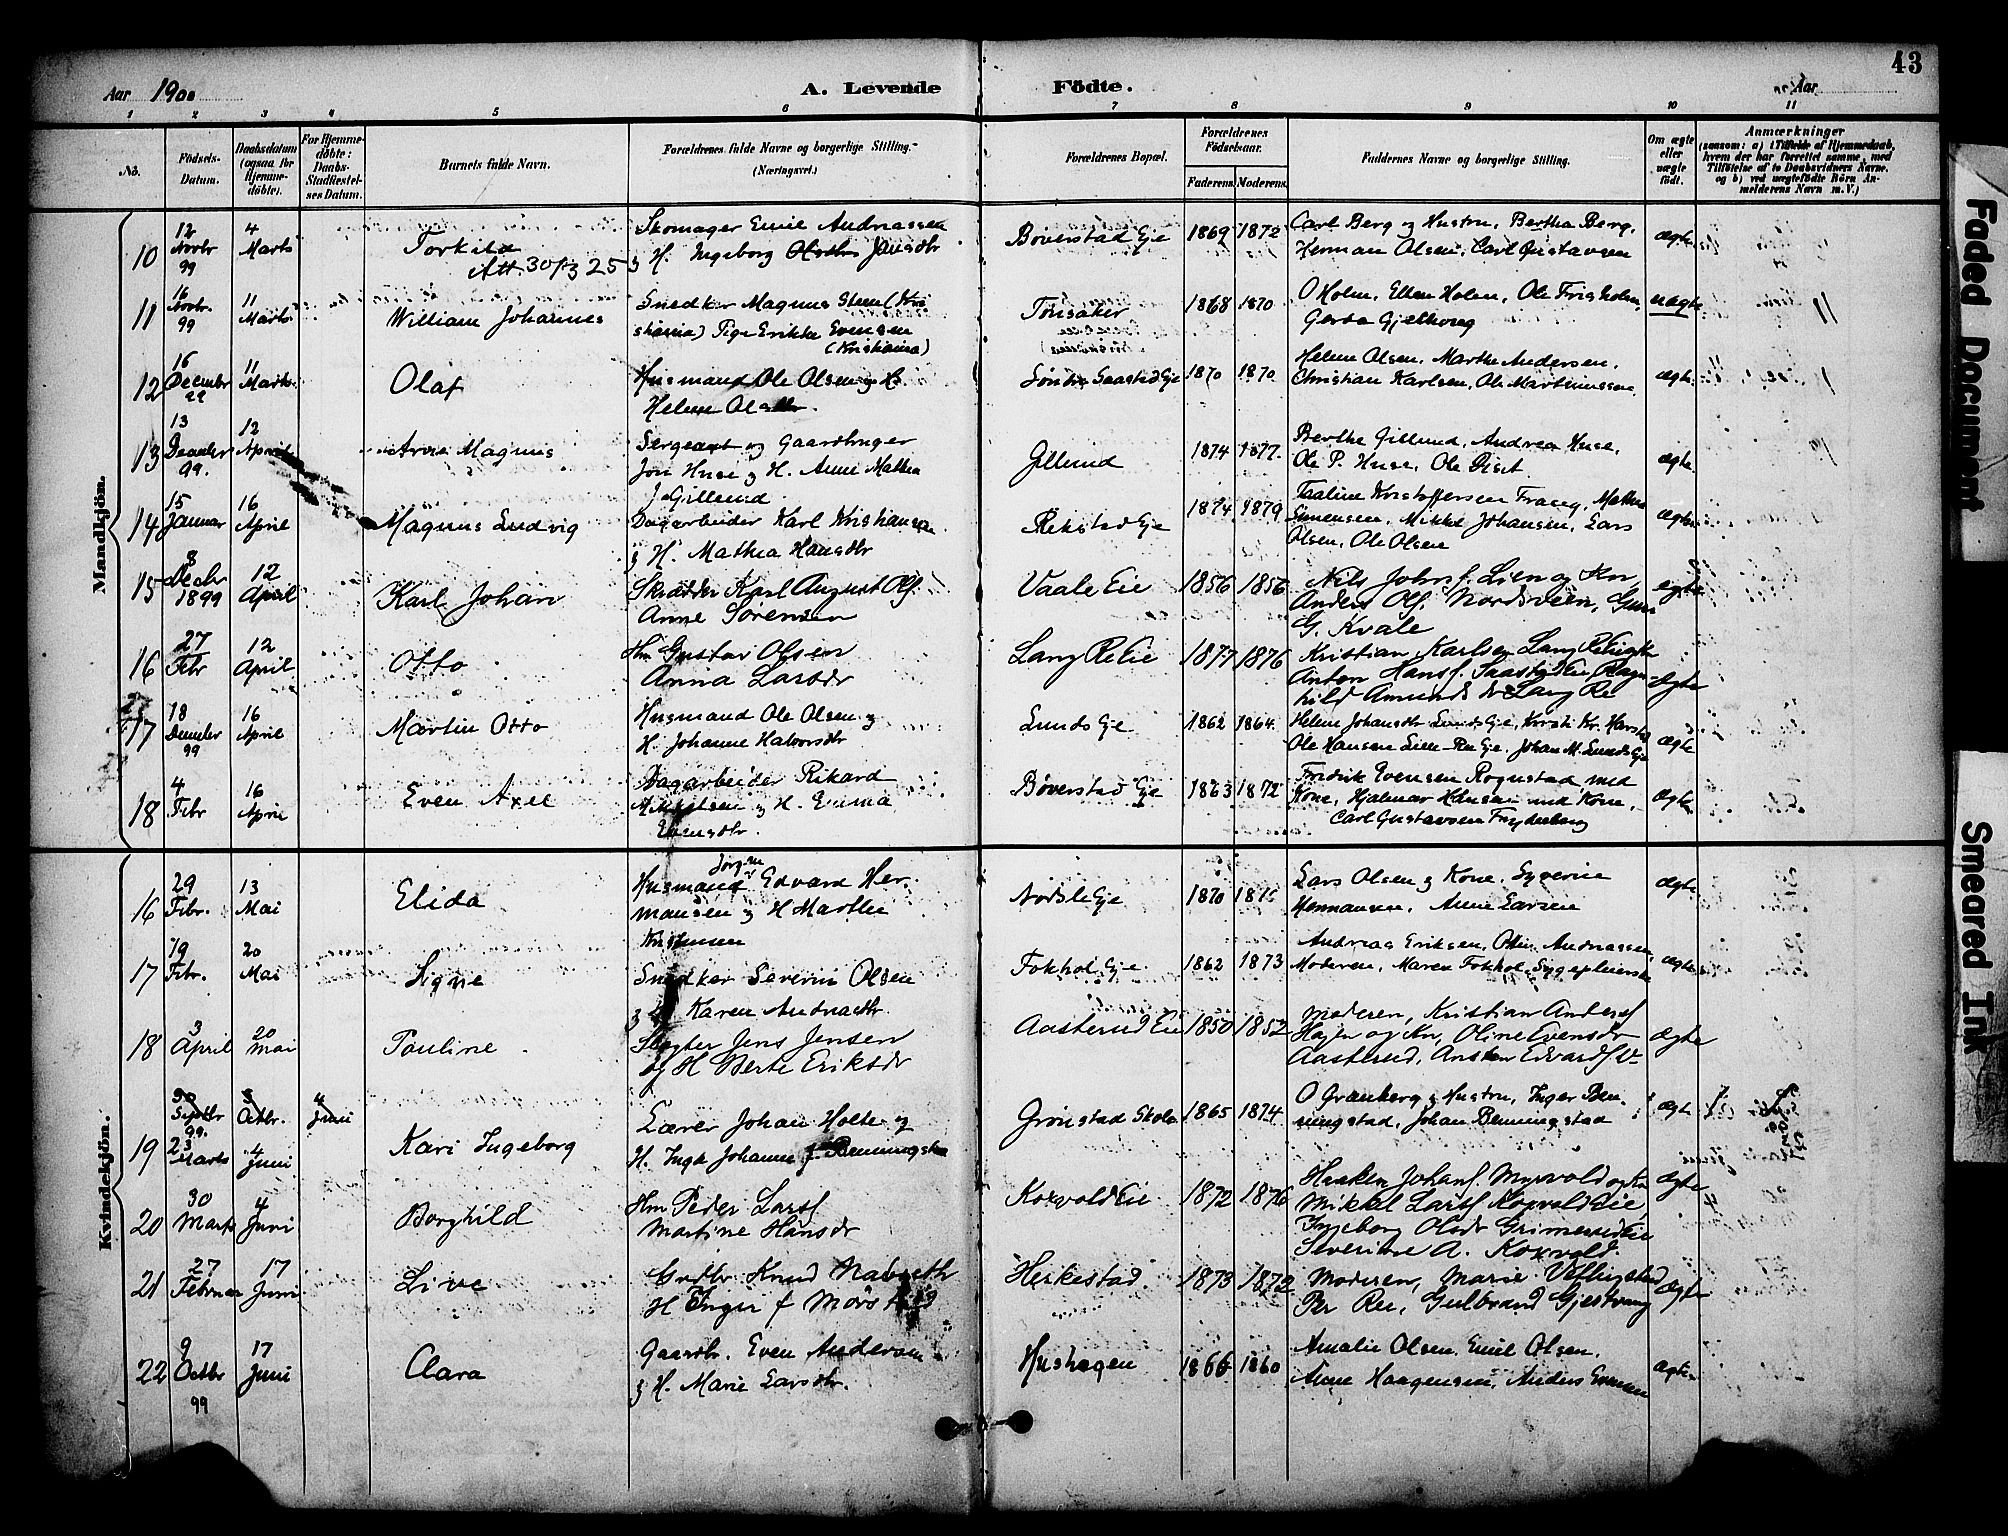 43
Aar 1900
A. Levende Födte.
Aar
1 2 3 4 5 6 7 8 9 10 11
No.
Födsels-
Datum.
Daabsdatum
(ogsaa for
Hjemme-
döbte).
For Hjemme-
döbte:
Daabs-
Stadfæstel-
ses Datum.
Barnets fulde Navn.
Forældrenes fulde Navne og borgerlige Stilling.
(Næringsvei.)
Forældrenes Bopæl.
Forældrenes
Födselsaar.
Faderens. Moderens.
Faddernes Navne og borgerlige Stilling.
Om ægte
eller
uægte
födt.
Anmærkninger
(saasom: a) i Tilfælde af Hjemmedaab,
hvem der har forrettet samme, med
Tilföielse af to Daabsvidners Navne,
og b) ved uægtefödte Börn An-
melderens Navn m. V.)
Mandkjön.
10 12 Novbr 99 4 Marts Torkild
Att. 30/3 25
Skomager Emil Andreassen
& H. Ingeborg Jansdtr
Böverstad Eje 1869 1872
Carl Berg og Hustru, Bertha Berg,
Herman Olsen, Carl Gustavsen
ægte
11 16 Novbr. 99 11 Marts William Johannes
Snedker Magnus Steen (Kri
stiania) Pige Erikka Evensen
(Kristiania)
Tönsaker 1868 1870
O Holen, Ellen Holen, Ole Frisholm,
Gerda Gjelhoug
uægte
12 16 Decembr 99 11 Marts Olaf
Husmand Ole Olsen og H.
Helene Olsdtr.
Söndre Saastad Eje 1870 1870
Helene Olsen, Marthe Andersen,
Christian Karlsen, Ole Martinussen
ægte
13 13 Decembr 99. 12 April Arne Magnus
Sergeant og Gaardbruger
Jon Huse & H. Anne Mathea
Gillund
Gillund 1874 1877
Berthe Gillund, Andrea Huse,
Ole P. Huse, Ole
ægte
14 15 Januar 16 April Magnus Ludvig
Dagarbeider Karl Kristiansen
& H. Mathea Hansdtr
Rikstad Eje 1874 1879
Paaline Kristoffersen Mathea
Simensen, Mikkel Johansen, Lars
Olsen, Ole Olsen
ægte
15 8 Decbr 1899 12 April Karl Johan
Skrædder Karl August Ols.
Anne Sörensen
Vaale Eie 1856 1856
Nils Johns. Lien og Kn,
Anders Ols. Nordsveen,
G. Kvale
ægte
16 27 Febr 12 April Otto
Hm Gustav Olsen
Anna Larsdr
Lang Re Eie 1877 1876
Kristian Karlsen Lang Re
Anton Hans. Saastad Eie, Ragn-
hild Amundsdr Lang Re
ægte
17 18 Decmbr 99 16 April Martin Otto
Husmand Ole Olsen &
H. Johanne Halvorsdtr
Lunds Eje 1862 1864.
Helene Johansdtr Lunds Eje, Kirsti Kr. Harstad
Ole Hansen Lien-Ree Eje, Johan M. Lunds Eje
ægte
18 4 Febr 16 April Even Axel
Dagarbeider Rikard
Mikkelsen & H. Emma
Evensdtr.
Böverstad Eje 1863 1872
Fredrik Evensen Rognstad med
Kone, Hjalmar Hansen med Kone,
Carl Gustavsen
ægte
Kvindekjön.
16 29 Febr. 13 Mai Elida
Jörgen
Husmand Edvard Her-
mansen & H Marthe
Kristensen
Eje 1870
Lars Olsen & Kone, Syverine
Hermansen, Anne Larsen
ægte
17 19 Febr. 20 Mai Signe
Snedker Severin Olsen
& H. Karen Andreasdtr.
Fokhol Eje 1862 1873
Andreas Eriksen, Otto Andreassen
Moderen, Maren Fokhol, Sygepleierske
ægte
18 3 April 20 Mai Pauline
Slagter Jens Jensen
og H Berte Eriksdr
Aasterud Eie 1850 1852
Moderen, Kristian Anders
Hagen og Kn, Oline Evensdr
Aasterud, Edvards.
ægte
30 Septbr 99. Octbr. 4 Juni
19 23 Marts 4 Juni Kari Ingeborg
Lærer Johan Holte og
H. Inga Johanne f. Benningstad
Grönstad Skole 1865 1874
O Granberg & Hustru, Inger Ben-
ningstad, Johan Benningstad
ægte
20 30 Marts 4 Juni Borghild
Hm Peder Lars.
Martine Hansdr
Korvold Eie 1872 1876
Haaken Johans. Myrvold og Kn
Mikkel Lars. Korvold Eie
Ingeborg Olsdr Grimerud Eie
Severine A. Korvold.
ægte
21 27 Februar 17 Juni Live
Grdbr. Knud Nabseth
H Inger f Mörstad
Herkestad 1873 1872
Moderen, Marie
Per Ree, Gulbrand Gjestvang
ægte
22 9 Octbr 99 17 Juni Clara
Gaardbr. Even Andersen
& H. Marie Larsdtr.
Hushagen 1866 1860
Amalie Olsen, Emil Olsen,
Anne Haagensen, Anders Evensen
ægte
Faded Document
Smeared Ink